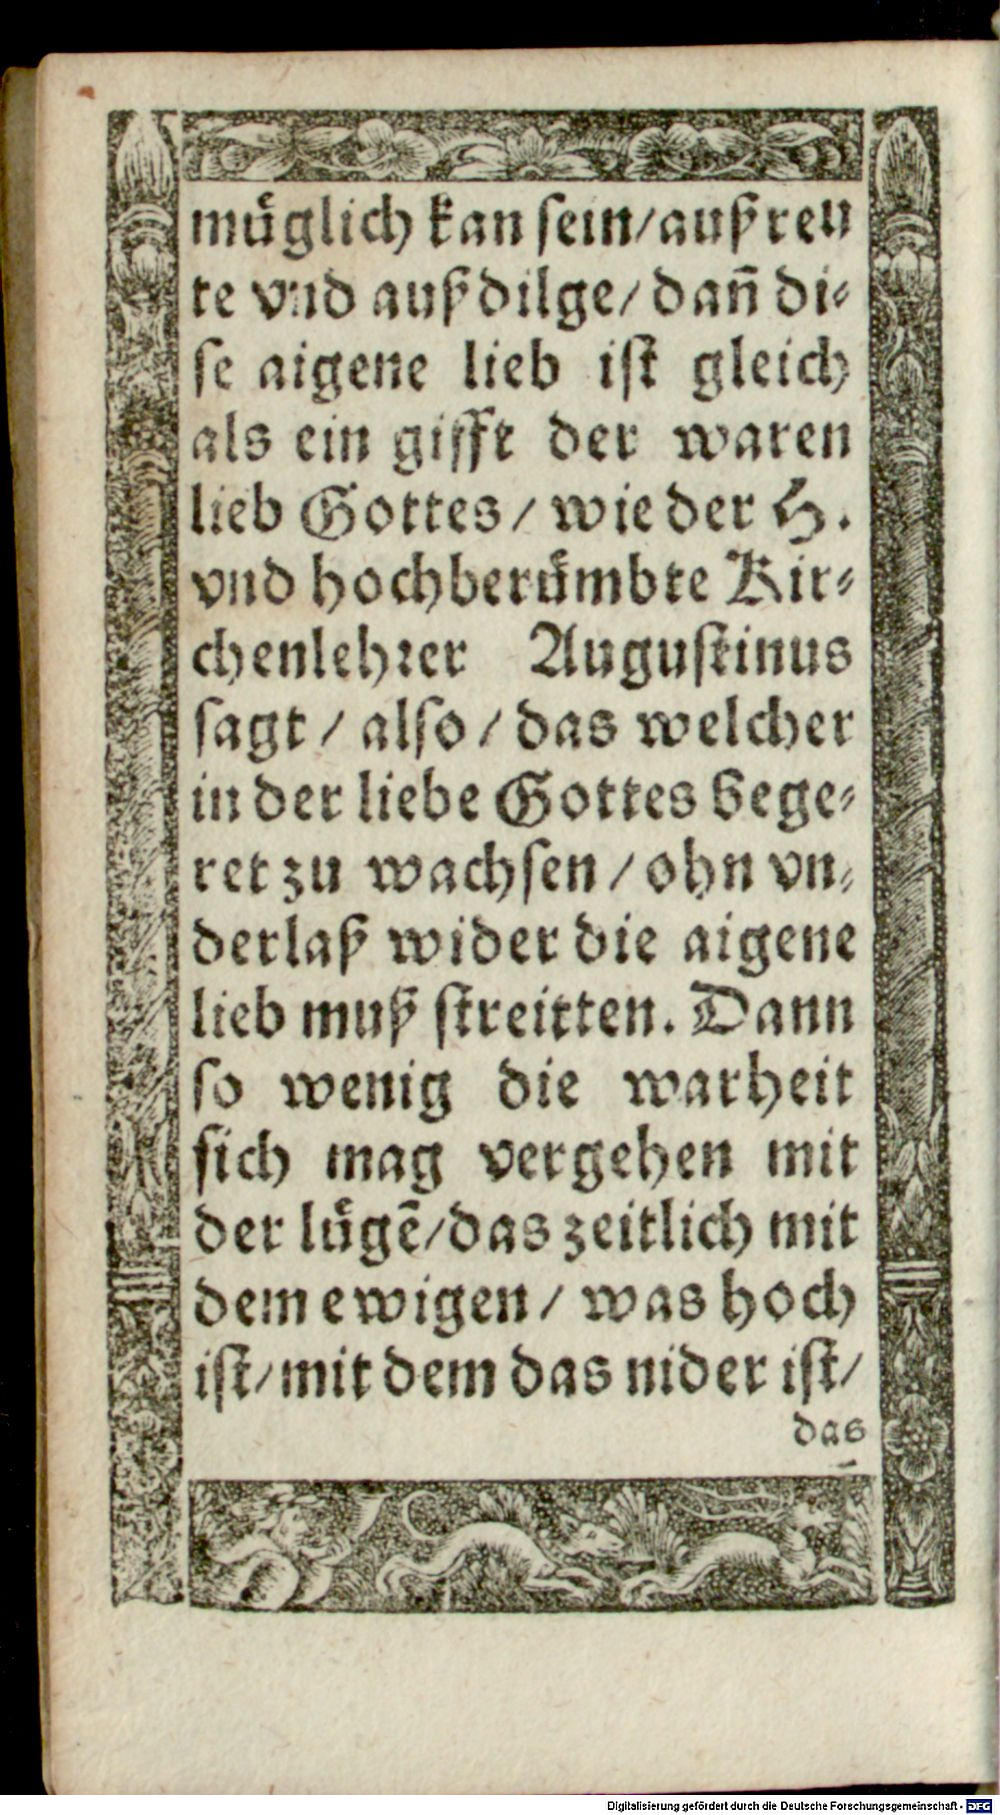 muͤglich kan sein/außreu
te vnd außdilge/ dañ di⸗
se aigene lieb ist gleich
als ein gifft der waren
lieb Gottes/ wie der H.
vnd hochberuͤmbte Kir⸗
chenlehrer Augustinus
sagt/ also/ das welcher
in der liebe Gottes bege⸗
ret zu wachsen/ ohn vn⸗
derlaß wider die aigene
lieb muß streitten. Dann
so wenig die warheit
sich mag vergehen mit
der luͤgē/das zeitlich mit
dem ewigen/ was hoch
ist/mit dem das nider ist/
das
Digitalisierung gefördert durch die Deutsche Forschungsgemeinschaft - DFG